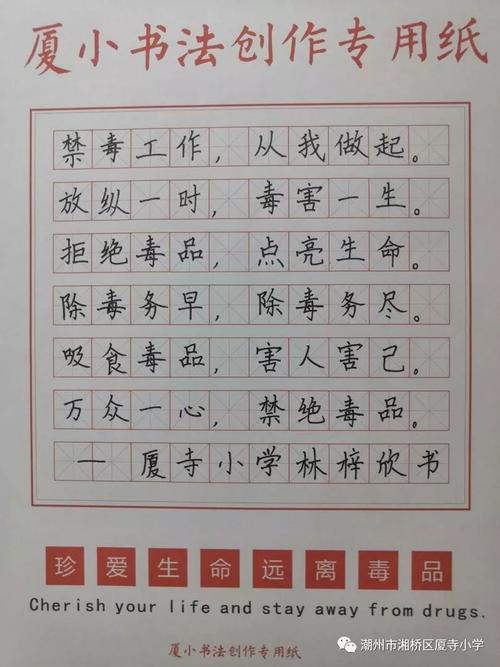 厦小书法创作专用纸
禁毒工作，从我做起。
放纵一时，毒害一生。
拒绝毒品，点亮生命。
除毒务早，除毒务尽。
吸食毒品，害人害己。
万众一心，禁绝毒品。
一厦寺小学林梓欣书
珍爱生命远离毒品
Cherish your life and stay away from drugs.
厦小书法创作专用纸
潮州市湘桥区厦寺小学